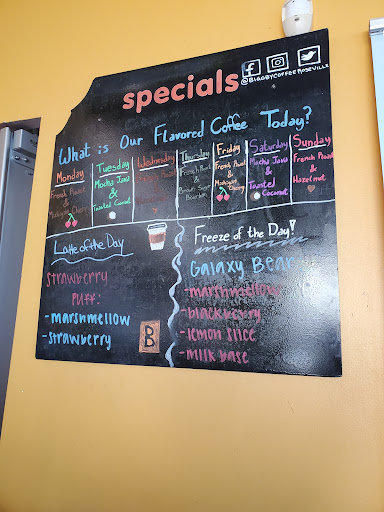 specials
@BIGGBYCOFFEEROSEVILLE
What is Our Flavored Coffee Today?
Monday
French Roast
&
Mahogany Cherry
Tuesday
Mocha Java
&
Toasted Coconut
Wednesday
Thursday
French Roast
&
Brown Sugar
Bourbon
Friday
French Roast
&
Mahogany
Cherry
Saturday
Mocha Java
&
Toasted
Coconut
Sunday
French Roast
&
Hazelnut
Latte of the Day
Strawberry
Puff:
-marshmellow
-strawberry
B
Freeze of the Day!
Galaxy Bear
-marshmellow
-blackberry
-lemon slice
-milk base